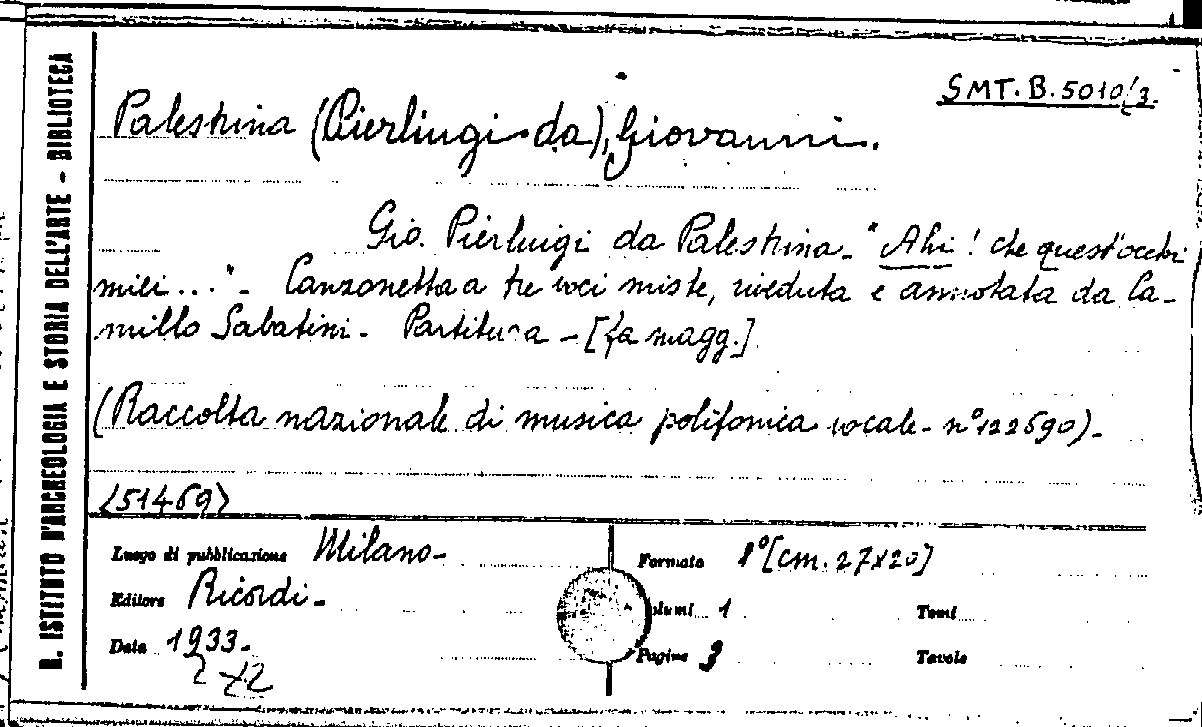 R. ISTITUTO D'ARCHEOLOGIA E STORIA DELL'ARTE - BIBLIOTECA
SMT. B. 5010/3.
Palestrina (Pierluigi da), Giovanni.
Gio. Pierluigi da Palestrina - "Ahi! che quest'occhi
miei..." - Canzonetta a tre voci miste, riveduta e annotata da Ca-
millo Sabatini - Partitura - [fa magg.]
(Raccolta nazionale di musica polifonica vocale - n° 122690) -
<51469>
Luogo di pubblicazione Milano -
Formato 8° [cm. 27x20]
Editore Ricordi -
Volumi 1
Tomi
Data 1933.
Pagine 3
Tavole